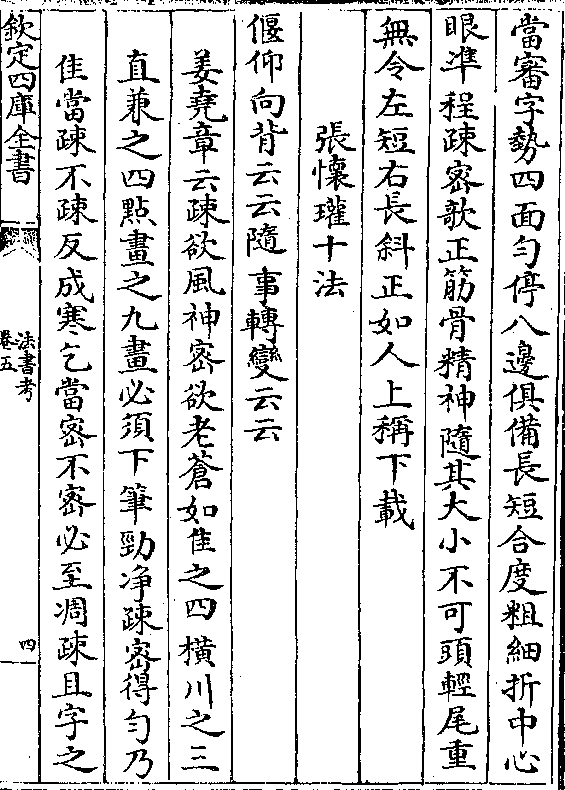 當審字勢四面勻停八邊俱備長短合度粗細折中心
眼準程疎密歌正筋骨精神隨其大小不可頭輕尾重
無令左短右長斜正如人上稱下載
張懷瓘十法
偃仰向背云云隨事轉變云云
姜堯章云疎欲風神密欲老蒼如隹之四橫川之三
直兼之四點畫之九畫必須下筆勁净疎密得勻乃
佳當疎不疎反成寒乞當密不密必至凋疎且字之
欽定四庫全書
法書考
卷五
四